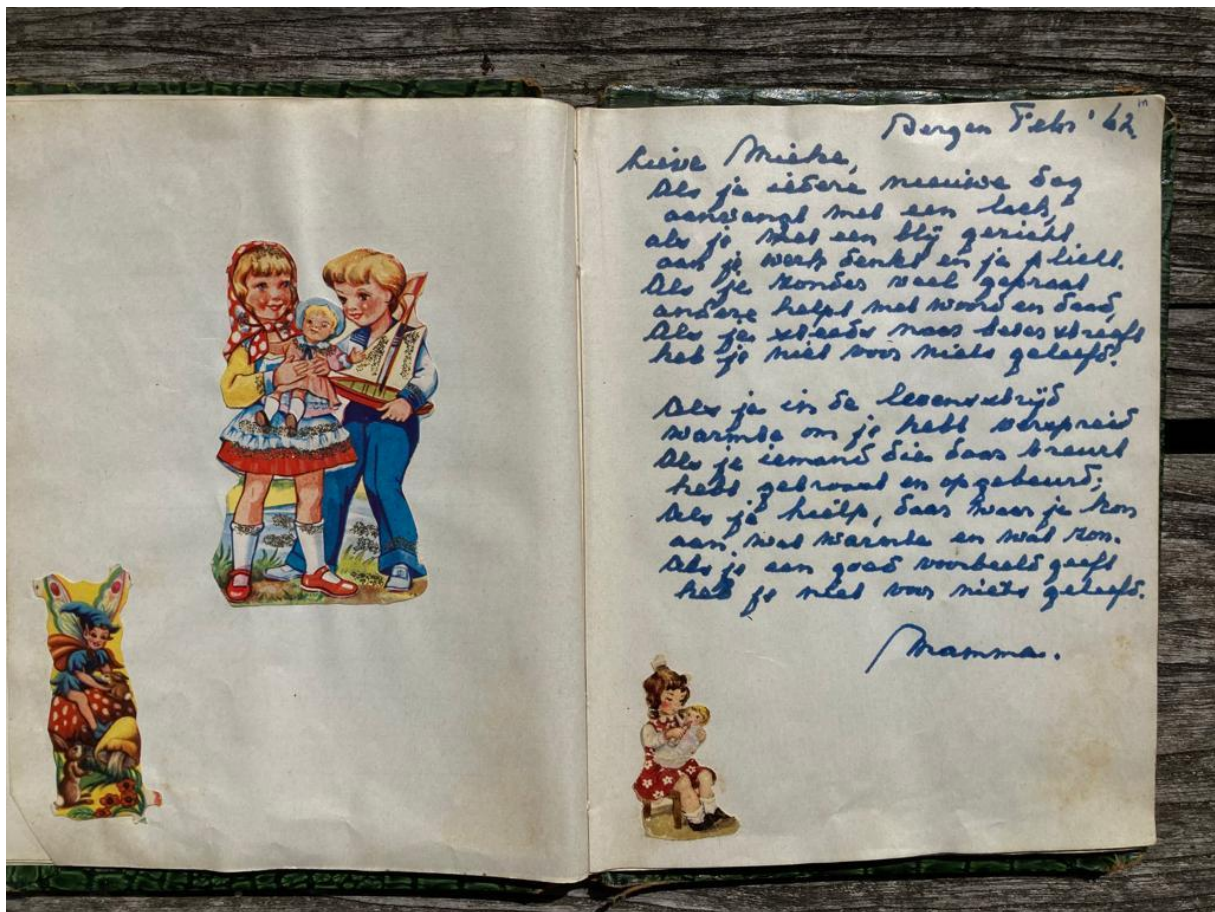 Bergen Febr '62
Lieve Mieke,
Als je iedere nieuwe dag
aanvangt met een lach,
als je met een blij gezicht
aan je werk denkt en je plicht.
Als je zonder veel gepraat
andere helpt met woord en daad,
Als je steeds naar beter streeft
heb je niet voor niets geleefd.
Als je in de levensstrijd
warmte om je hebt verspreid
Als je iemand die daar treurt
hebt getroost en opgebeurd;
Als je hielp, daar waar je kon
aan wat warmte en wat zon.
Als je een goed voorbeeld geeft
heb je niet voor niets geleefd.
Mamma.